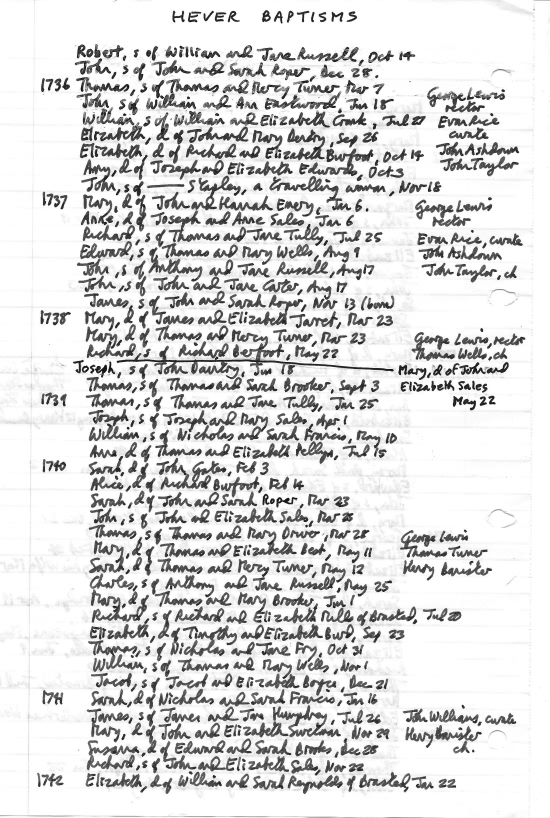 HEVER BAPTISMS
Robert, s of William and Jane Russell, Oct 14
John, s of John and Sarah Roper, Dec 28.
1736 Thomas, s of Thomas and Mercy Turner, Mar 7
John, s of William and Ann Eastwood, Jun 18
George Lewis
rector
William, s of William and Elizabeth Cronk, Jul 27
Evan Rice
curate
Elizabeth, d of John and Mary Denby, Sep 26
Elizabeth, d of Richard and Elizabeth Burfoot, Oct 14
John Ashdown
Amy, d of Joseph and Elizabeth Edwards, Oct 3
John Taylor
John, s of —— Stapley, a travelling woman, Nov 18
1737 Mary, d of John and Hannah Emery, Jan 6.
George Lewis
rector
Anne, d of Joseph and Anne Sales, Jan 6
Richard, s of Thomas and Jane Tully, Jul 25
Evan Rice, curate
Edward, s of Thomas and Mary Wells, Aug 9
John Ashdown
John, s of Anthony and Jane Russell, Aug 17
John Taylor, ch
John, s of John and Jane Carter, Aug 17
James, s of John and Sarah Roper, Nov 13 (born)
1738 Mary, d of James and Elizabeth Jarret, Mar 23
Mary, d of Thomas and Mercy Turner, Mar 23
George Lewis, rector
Richard, s of Richard Berfoot, May 22
Thomas Wells, ch
Joseph, s of John Dautry, Jun 18
Mary, d of John and
Elizabeth Sales
May 22
Thomas, s of Thomas and Sarah Brooker, Sept 3
1739 Thomas, s of Thomas and Jane Tully, Jan 25
Joseph, s of Joseph and Mary Sales, Apr 1
William, s of Nicholas and Sarah Francis, May 10
Anne, d of Thomas and Elizabeth Pellyn, Jul 15
1740 Sarah, d of John Gates, Feb 3
Alice, d of Richard Burfoot, Feb 14
Sarah, d of John and Sarah Roper, Mar 23
John, s of John and Elizabeth Sales, Mar 28
Thomas, s of Thomas and Mary Driver, Mar 28
George Lewis
Mary, d of Thomas and Elizabeth Best, May 11
Thomas Turner
Sarah, d of Thomas and Mercy Turner, May 12
Henry Banister
Charles, s of Anthony and Jane Russell, May 25
Mary, d of Thomas and Mary Brooker, Jun 1
Richard, s of Richard and Elizabeth Mills of Brasted, Jul 20
Elizabeth, d of Timothy and Elizabeth Burd, Sep 23
Thomas, s of Nicholas and Jane Fry, Oct 31
William, s of Thomas and Mary Wells, Nov 1
Jacob, s of Jacob and Elizabeth Boyce, Dec 21
1741 Sarah, d of Nicholas and Sarah Francis, Jan 16
James, s of James and Jane Humphrey, Jul 26
John Williams, curate
Mary, d of John and Elizabeth Swetman, Nov 29
Henry Banister
ch.
Susanna, d of Edward and Sarah Brooks, Dec 28
Richard, s of John and Elizabeth Sales, Nov 22
1742 Elizabeth, d of William and Sarah Reynolds of Brasted, Jan 22